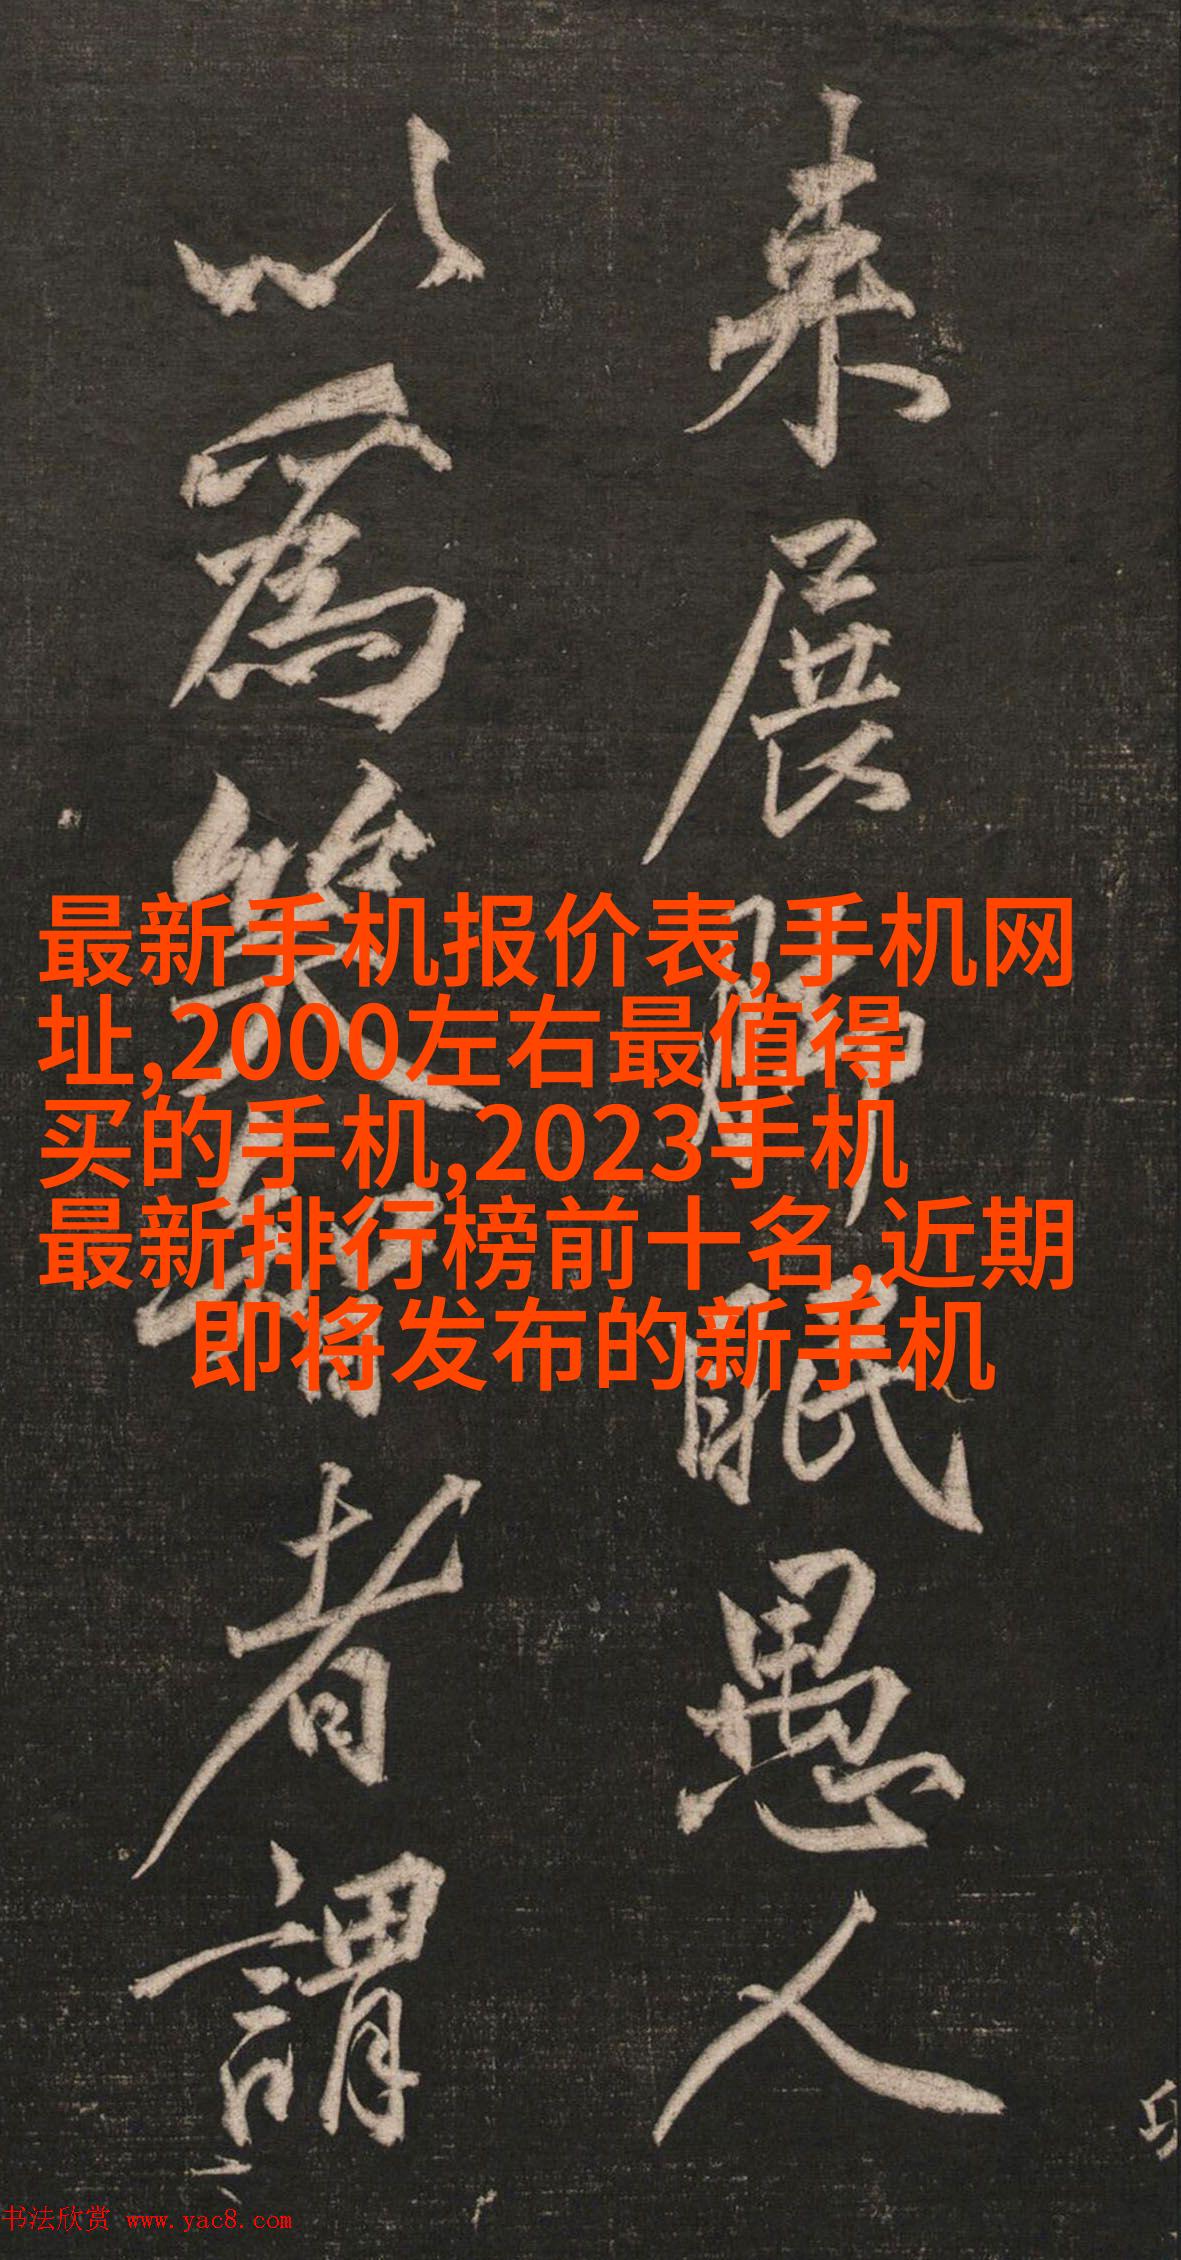 来展脚眠愚人
以為笑智者謂
最新手机报价表,手机网
址,2000左右最值得
买的手机,2023手机
最新排行榜前十名,近期
即将发布的新手机
书法欣赏 www.yac8.com